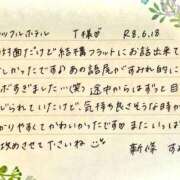 ッフルホテル T様♡ R8.6.18
対面だけど結構フラットにお話出来て
しかったです♪あの語尾がすみれ的に
ボすぎました…(笑)途中からはずっと目
じられていたけど、気持ち良さそうなのが
かりやすくてかわいかったです♡またいっぱ
攻めさせてくださいね
新條 す